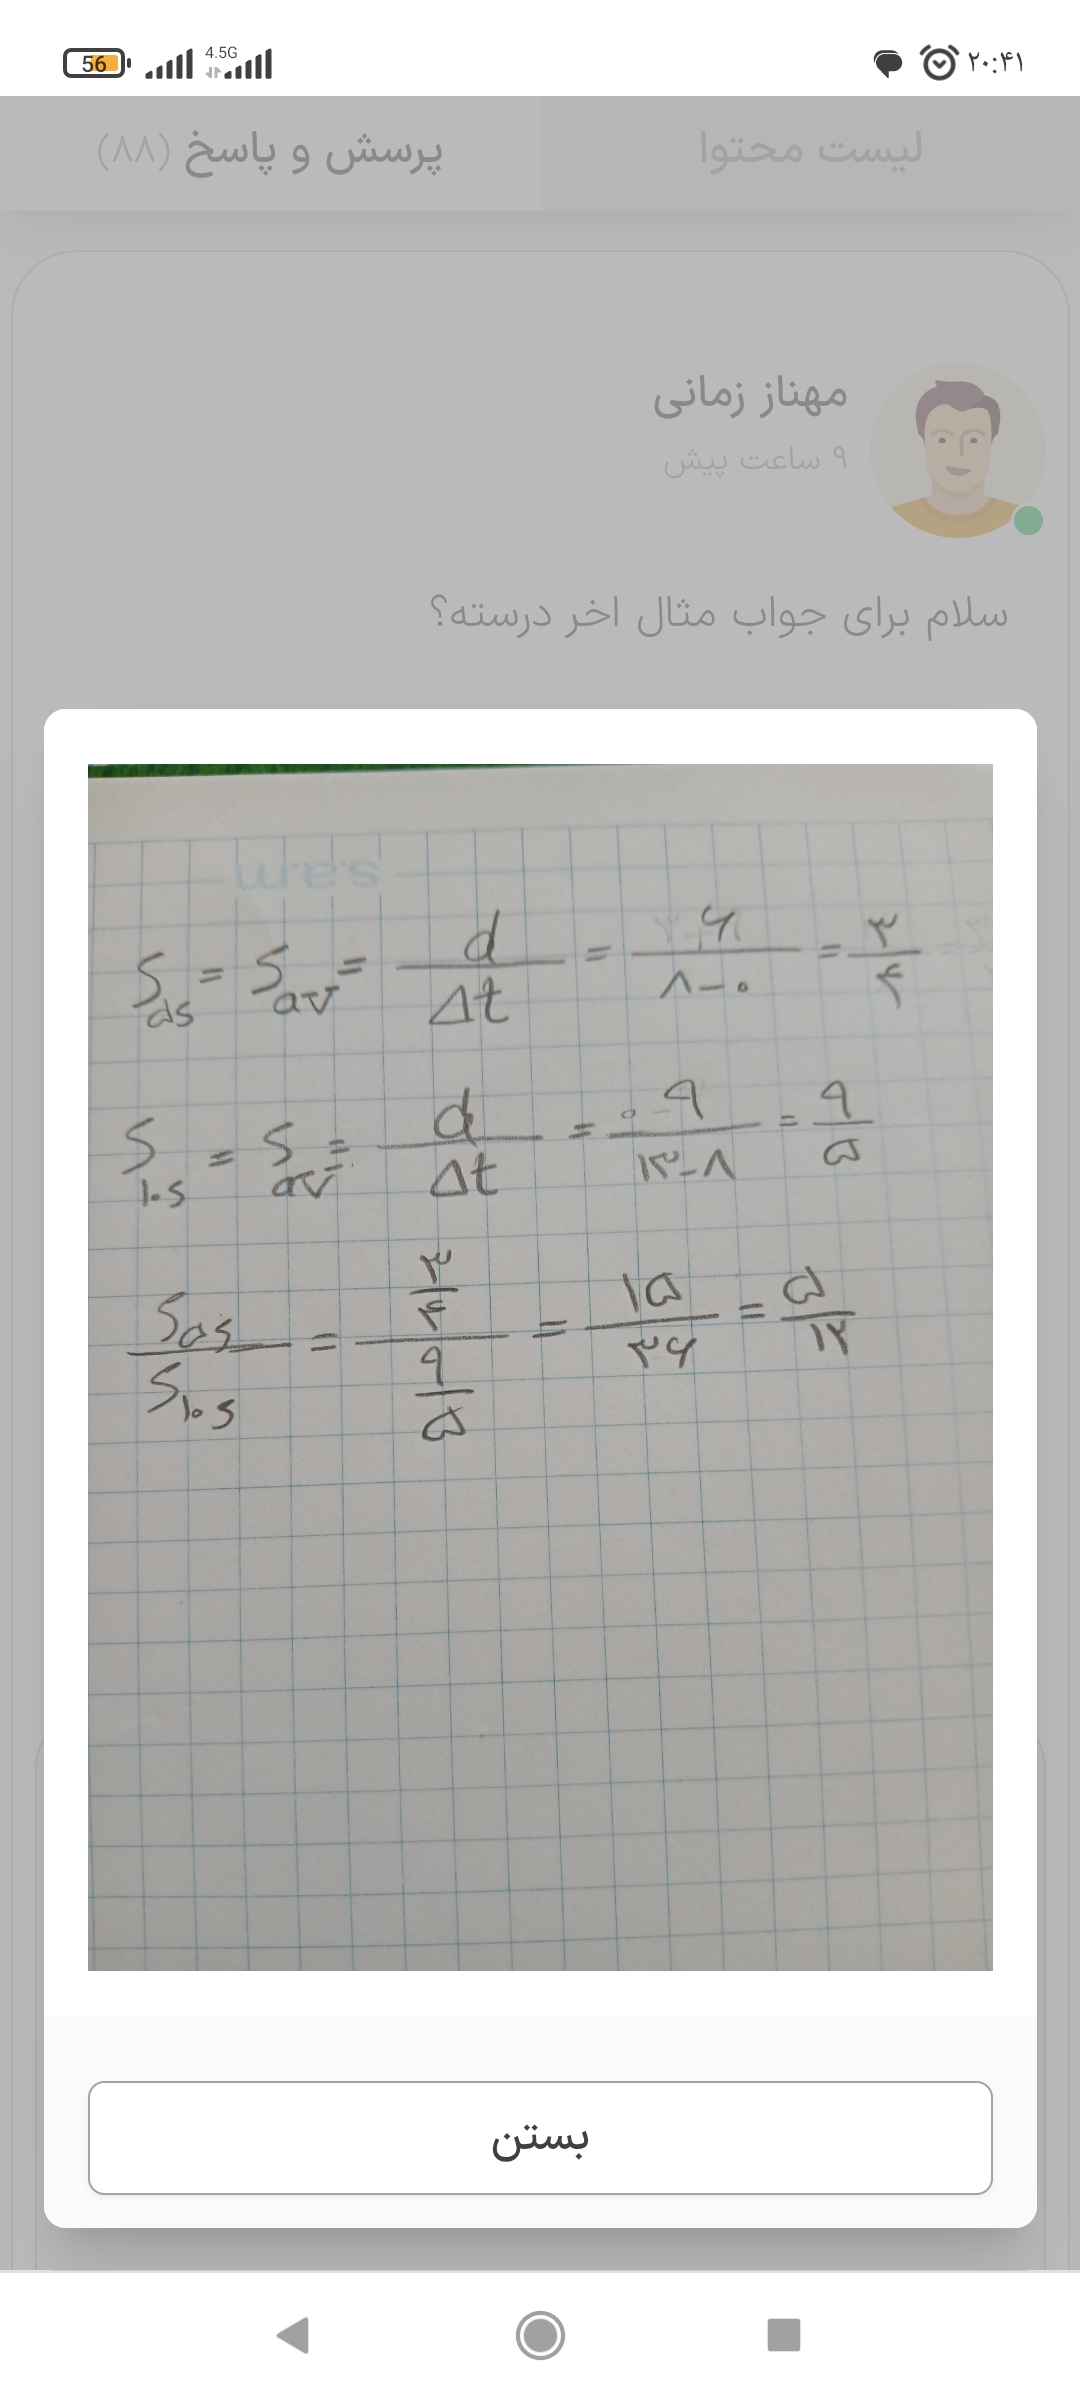 56 4.5G ۲۰:۴۱
لیست محتوا
پرسش و پاسخ (۸۸)
مهناز زمانی
۹ ساعت پیش
سلام برای جواب مثال اخر درسته؟
s.a.m
S_as = S_av = d/Δt = ۶/(۸-۰) = ۳/۴
S_۱۰s = S_av = d/Δt = (۰-۹)/(۱۳-۸) = ۹/۵
S_as/S_۱۰s = (۳/۴)/(۹/۵) = ۱۵/۳۶ = ۵/۱۲
بستن